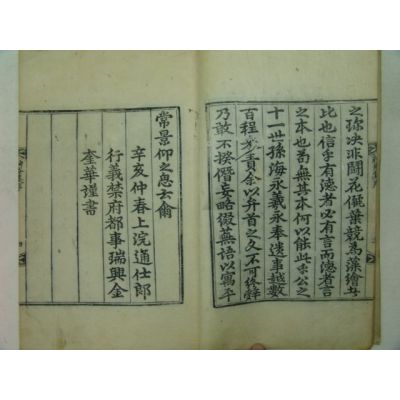 之琢决非鬪花儷葉競為藻繪者
比也信乎有德者必有言而德者言
之本也苟無其本何以能此乎公之
十一世孫海永羲永奉遺事越數
百程責余以弁首之文不可終辭
乃敢不揆僭妄略綴蕪語以寓平
常景仰之思云爾
辛亥仲春上浣通仕郎
行義禁府都事瑞興金
奎華謹書